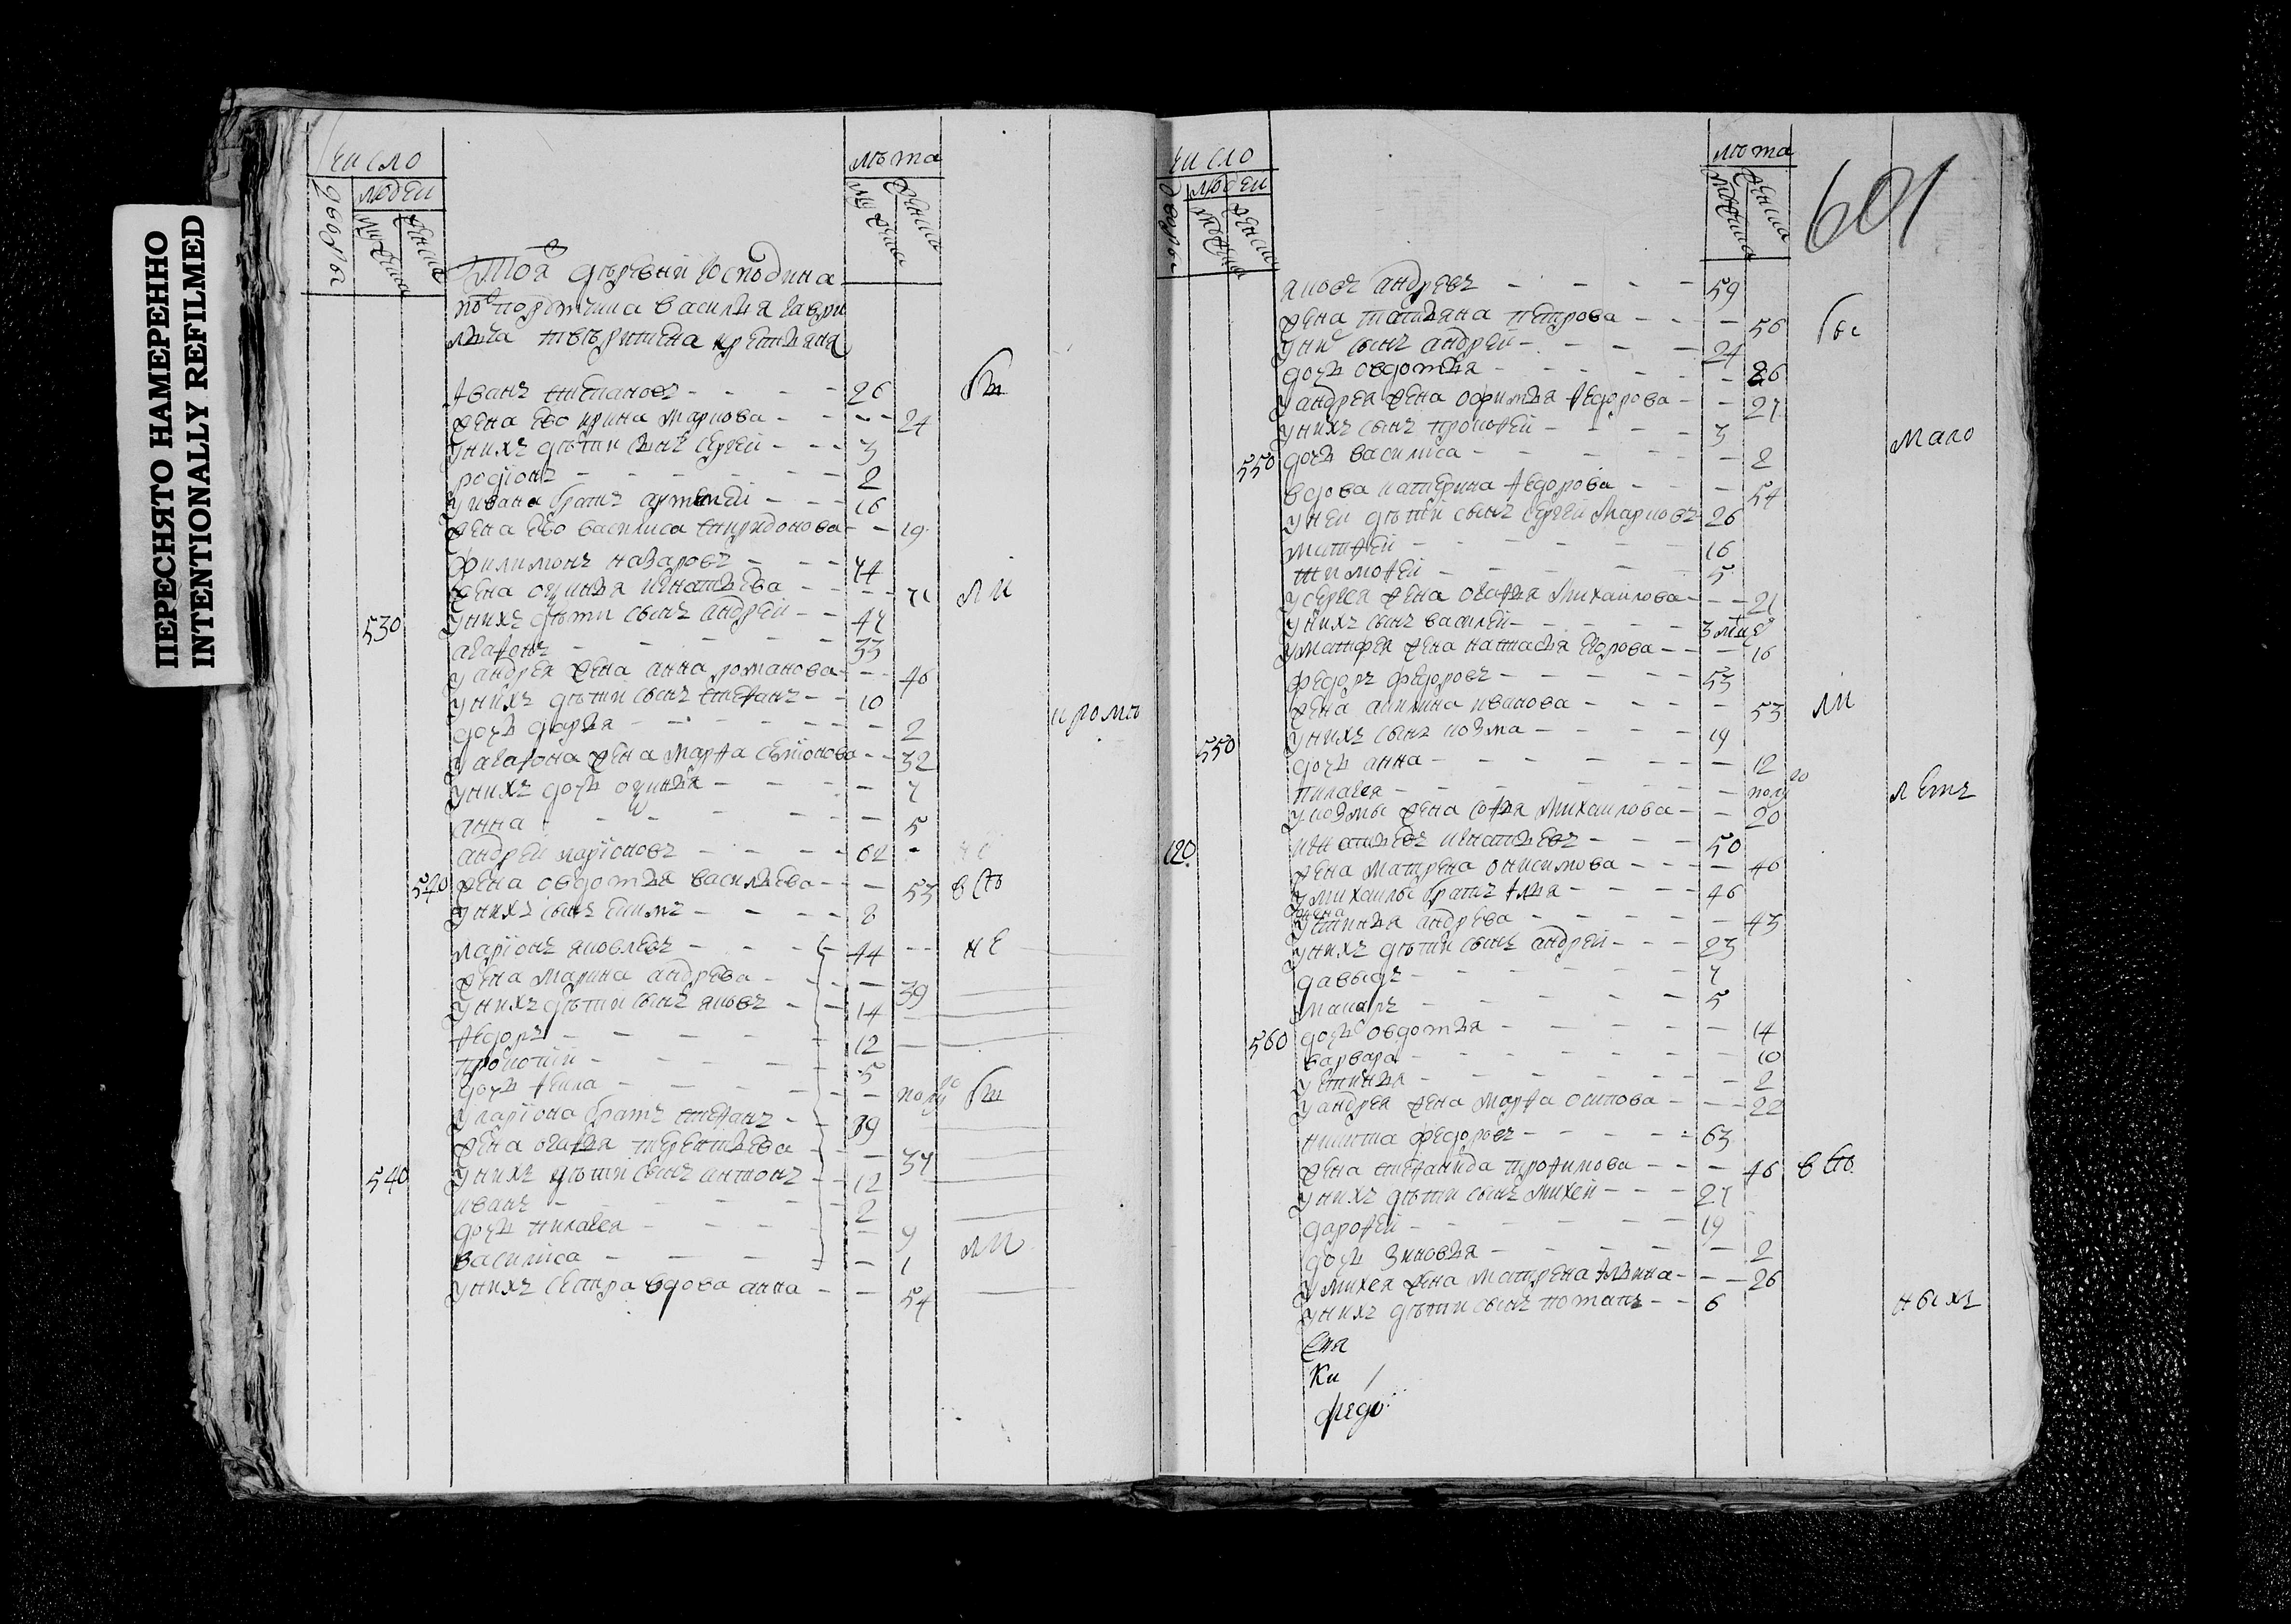 ПЕРЕСНЯТО НАМЕРЕННО
INTENTIONALLY REFILMED
число
дворы
людей
мужеска
женска
лѣта
мужеска
женска
Тоя деревни господина
василья гаври
крестьяня
иванъ степановъ - - - - 26
жена ево ирина маркова - - - - 24
у нихъ дѣти сынъ сергей - - - 3
родионъ - - - - - - 2
у ивана братъ артемей - - - 16
жена ево василиса спиридонова - - 19
филимонъ назаровъ - - - 74
жена офимья игнатьева - - - - 71 ли
530 у нихъ дѣти сынъ андрей - - 47
агафонъ - - - - - 33
у андрея жена анна романова - - - 46
у нихъ дѣти сынъ степанъ - - 10
кромѣ
дочь дарья - - - - - - - 2
у агафона жена марфа семионова - - 32
у нихъ дочь офимья - - - - 7
анна - - - - - 5
андрей ларионовъ - - - - 62 -
540 жена овдотья васильева - - - 53 в сто
у нихъ сынъ екимъ - - - - 8
ларионъ яковлевъ - - - 44 -- не
жена марина андрева - - - 39
у нихъ дѣти сынъ яковъ - - 14
федоръ - - - - 12
прокопий - - - - - 5
дочь фекла - - - - - полу го
у лариона братъ степанъ - - 39
жена агафья терентьева - - 37
540 у нихъ дѣти сынъ антонъ - - 12
иванъ - - - - 2
дочь пилагея - - - - 9
василиса - - - - - 1 ли
у нихъ сестра вдова анна - - 54
число
дворы
людей
мужеска
женска
лѣта
мужеска
женска
601
яковъ андревъ - - - - 59
жена татьяна петрова - - - - 56 бы
у них сынъ андрей - - - - 24
дочь овдотья - - - - - 26
у андрея жена офимья федорова - - 27
у нихъ сынъ прокофей - - - 3
мало
550 дочь василиса - - - - - - 2
вдова катерина федорова - - - - 54
у ней дѣти сынъ сергей марковъ 26
матфей - - - - - 16
тимофей - - - - - 5
у сергея жена агафья михаилова - - - 21
у нихъ сынъ василей - - - - - 3 мѣце
у матфея жена настасья егорова - - - 16
федоръ федоровъ - - - - - 53
жена акилина иванова - - - - - 53 ли
550 у нихъ сынъ козма - - - - 19
дочь анна - - - - - - - 12
пилагея - - - - - полу го
летъ
у козмы жена софья михаилова - - - 20
120. игнатьевъ - - - - - 50
жена матрена онисимова - - - - 46
у михаилы братъ илья - - - - 46
жена
устинья андрева - - - - - 43
у нихъ дѣти сынъ андрей - - - 23
давыдъ - - - - - 7
макаръ - - - - - - 5
560 дочь овдотья - - - - - 14
варвара - - - - - - 10
устинья - - - - - - - 2
у андрея жена марфа осипова - - - 22
никита федоровъ - - - - - 63
жена степанида трофимова - - - 46 в сто
у нихъ дѣти сынъ михей - - - 27
дорофей - - - - - 19
дочь зиновья - - - - - 2
у михея жена матрена ильина - - - 26
у нихъ дѣти сынъ потапъ - - 6
ныхъ
Ки
федо